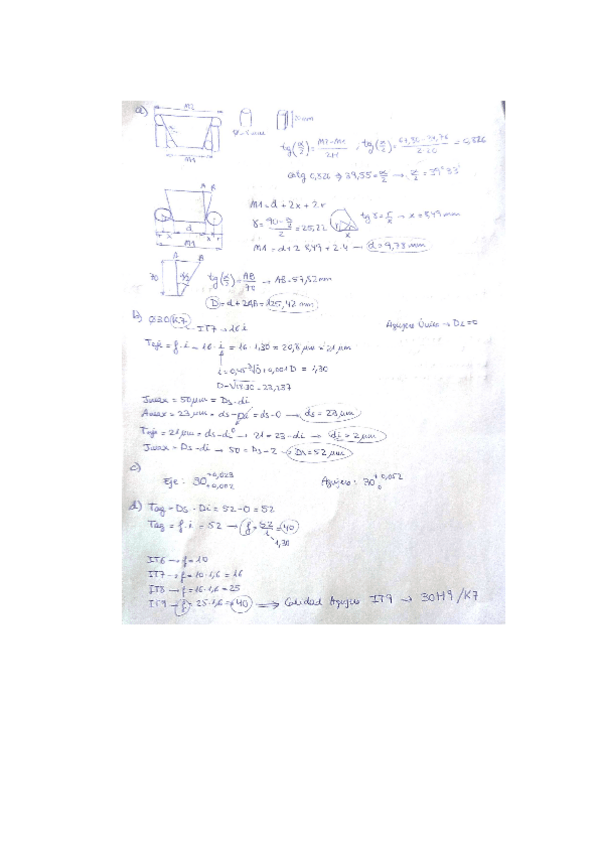 a) M2
M1
tg(α/2) = M2-M1 / 2H
arctg 0,826 → 39,55 = α/2 → α/2 = 39° 33'
A B
M1 = d + 2x + 2r
γ = 90 - α/2 / 2 = 25,22
tg γ = r/x → x = 8,49 mm
x d x r
M1
M1 = d + 2 · 8,49 + 2·4 → d = 9,73 mm
A B
70 α/2 tg(α/2) = AB/70 → AB = 57,82 mm
D = d + 2AB = 125,42 mm
b) ø30 K7
→ IT7 → 16i
Agujero Único → Di = 0
Teje = f · i = 16 · i = 16 · 1,30 = 20,8 μm ≈ 21 μm
i = 0,45 ∛D + 0,001 D = 1,30
Jmax = 50 μm = Ds - di
Amax = 23 μm = ds - Di = ds - 0 → ds = 23 μm
Teje = 21 μm = ds - di → 21 = 23 - di → di = 2 μm
Jmax = Ds - di → 50 = Ds - 2 → Ds = 52 μm
c)
Eje : 30 +0,023 +0,002
Agujero : 30 +0,052 0
d) Tag = Ds - Di = 52 - 0 = 52
Tag = f · i = 52 → f = 52/i = 40
1,30
IT6 → f = 10
IT7 → f = 10 · 1,6 = 16
IT8 → f = 16 · 1,6 = 25
IT9 → f = 25 · 1,6 = 40 ⇒ Calidad Agujero IT9 → 30H9/K7